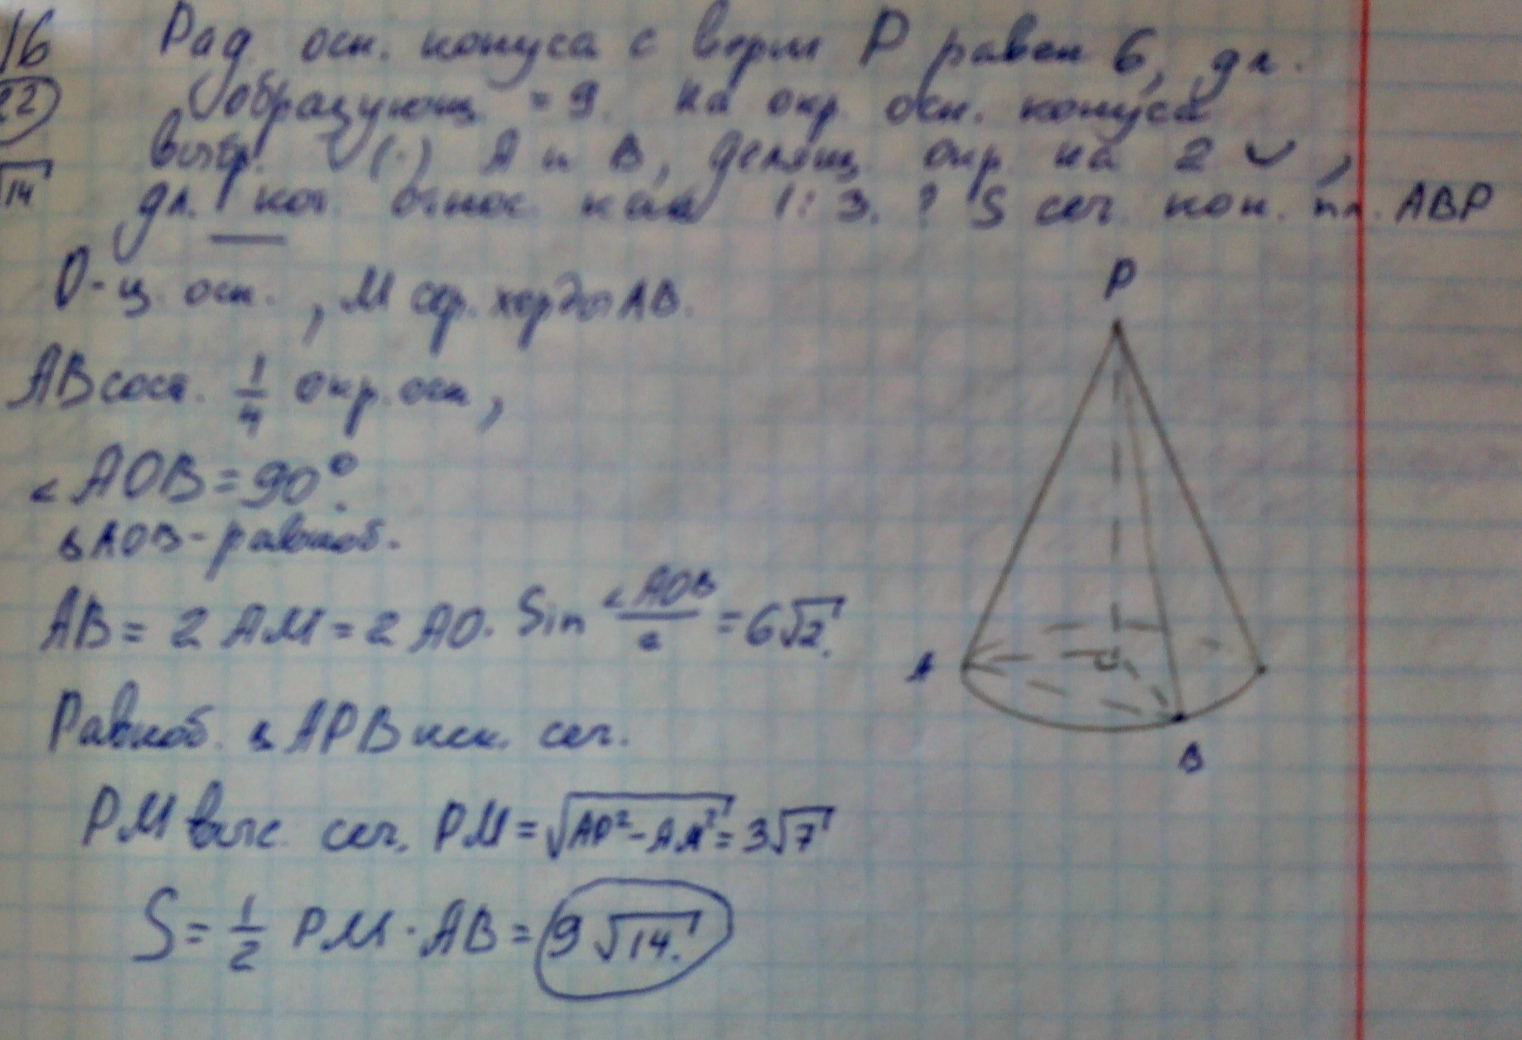 16 Рад осн. конуса с верш P равен 6, дл.
22 образующ = 9. На окр. осн. конуса
выбр. (·) A и B, делящ окр на 2 ◡,
√14 дл. кот. относ. как 1:3. ? S сеч. кон. пл. ABP
O-ц. осн., M сер. хорды AB.
P
AB сост. 1/4 окр. осн,
∠AOB = 90°.
△AOB - равноб.
AB = 2 AM = 2 AO · Sin ∠AOB/2 = 6√2.
A
Равноб. △APB иск. сеч.
B
PM выс. сеч. PM = √AP² - AM² = 3√7
S = 1/2 PM · AB = 9√14.